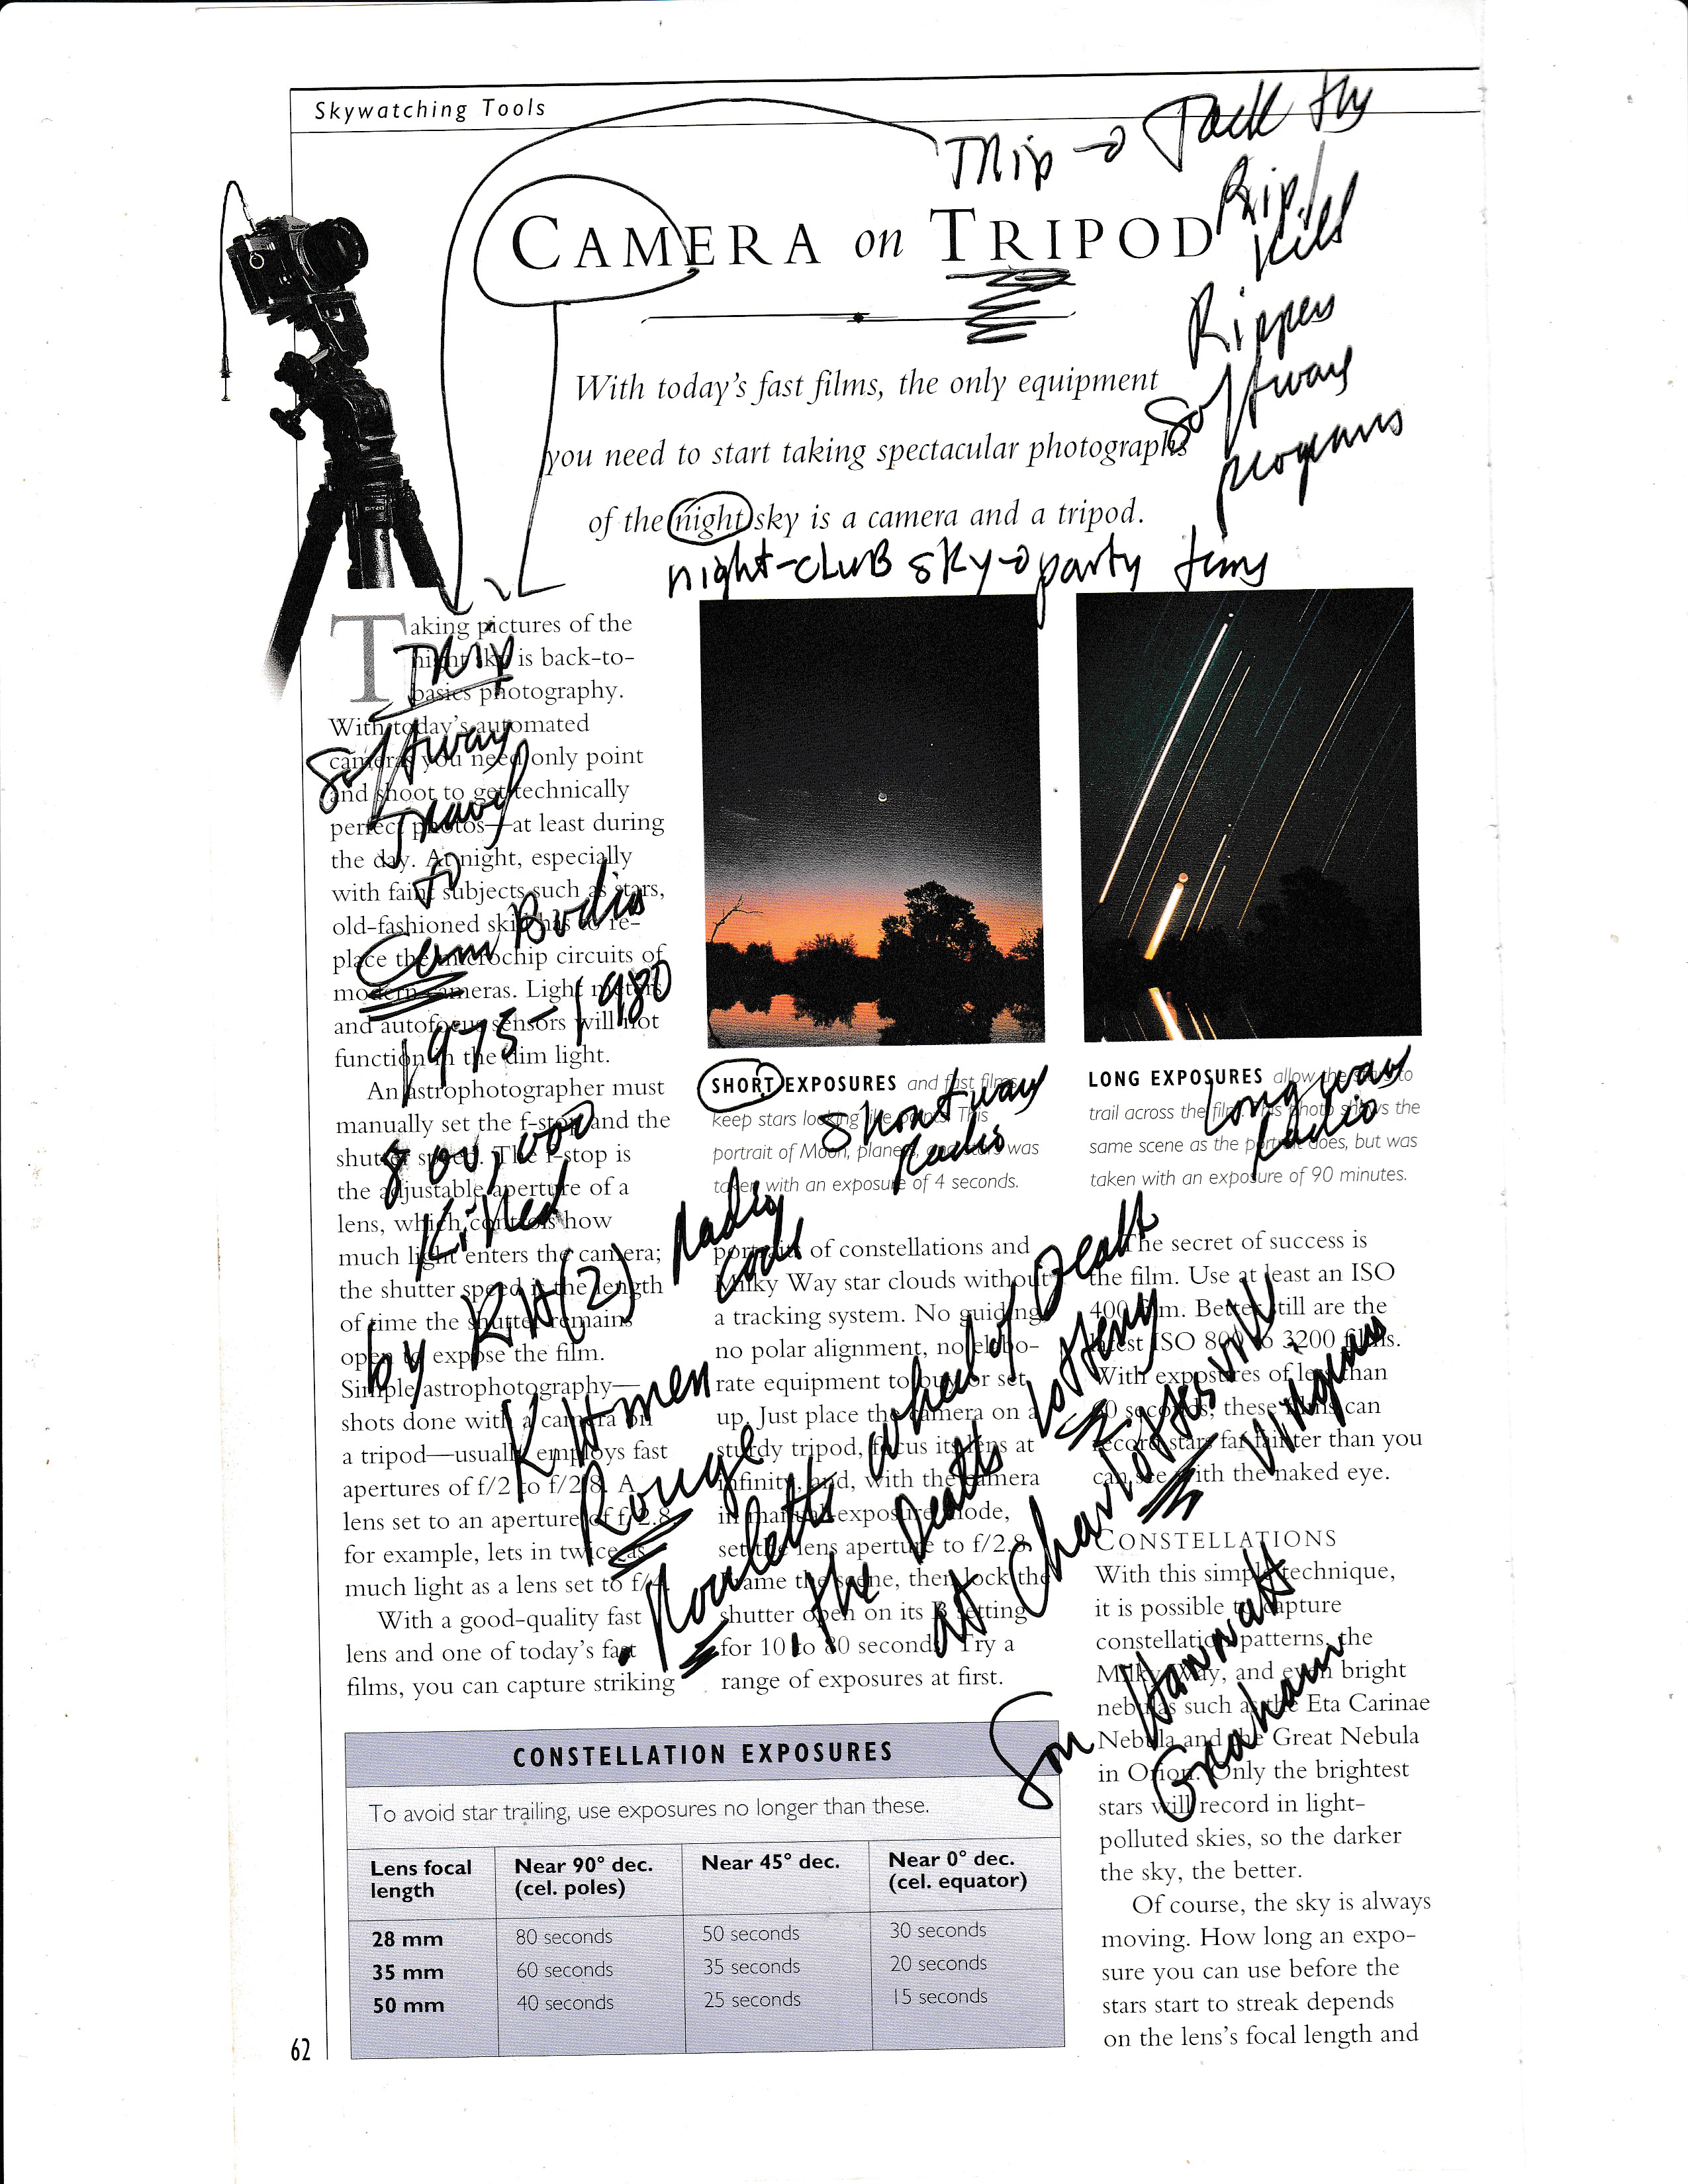 Skywatching Tools
Trip → Jack the
Rip/
Kill
Rippers
Softway
programs
CAMERA on TRIPOD
With today's fast films, the only equipment
you need to start taking spectacular photographs
of the night sky is a camera and a tripod.
night-cLuB sky→party
Taking pictures of the
night sky is back-to-
basics photography.
With today's automated
cameras you need only point
and shoot to get technically
perfect photos—at least during
the day. At night, especially
with faint subjects such as stars,
old-fashioned skill has to re-
place the microchip circuits of
modern cameras. Light meters
and autofocus sensors will not
function in the dim light.
An astrophotographer must
manually set the f-stop and the
shutter speed. The f-stop is
the adjustable aperture of a
lens, which controls how
much light enters the camera;
the shutter speed is the length
of time the shutter remains
open to expose the film.
Simple astrophotography—
shots done with a camera on
a tripod—usually employs fast
apertures of f/2 to f/2.8. A
lens set to an aperture of f/2.8,
for example, lets in twice as
much light as a lens set to f/4.
With a good-quality fast
lens and one of today's fast
films, you can capture striking
Trip
Softway
Travel
to
CamBodia
1975-1980
800,000
Killed
by KH(2) Radio
code
KHmer
Rouge
Roulette wheel of Death
, the Death Lottery
at Charlottesville
Virginia
Son Hannah
Graham
SHORT EXPOSURES and fast films
keep stars looking like points. This
portrait of Moon, planets, and stars was
taken with an exposure of 4 seconds.
Shortway
Radio
LONG EXPOSURES allow the stars to
trail across the film. This photo shows the
same scene as the portrait does, but was
taken with an exposure of 90 minutes.
Longway
Radio
portraits of constellations and
Milky Way star clouds without
a tracking system. No guiding,
no polar alignment, no elabo-
rate equipment to buy or set
up. Just place the camera on a
sturdy tripod, focus its lens at
infinity, and, with the camera
in manual-exposure mode,
set the lens aperture to f/2.8.
Frame the scene, then lock the
shutter open on its B setting
for 10 to 80 seconds. Try a
range of exposures at first.
The secret of success is
the film. Use at least an ISO
400 film. Better still are the
latest ISO 800 to 3200 films.
With exposures of less than
60 seconds, these films can
record stars far fainter than you
can see with the naked eye.
CONSTELLATIONS
With this simple technique,
it is possible to capture
constellation patterns, the
Milky Way, and even bright
nebulas such as the Eta Carinae
Nebula and the Great Nebula
in Orion. Only the brightest
stars will record in light-
polluted skies, so the darker
the sky, the better.
Of course, the sky is always
moving. How long an expo-
sure you can use before the
stars start to streak depends
on the lens's focal length and
CONSTELLATION EXPOSURES
To avoid star trailing, use exposures no longer than these.
Lens focal length Near 90° dec. (cel. poles) Near 45° dec. Near 0° dec. (cel. equator)
28 mm 80 seconds 50 seconds 30 seconds
35 mm 60 seconds 35 seconds 20 seconds
50 mm 40 seconds 25 seconds 15 seconds
62